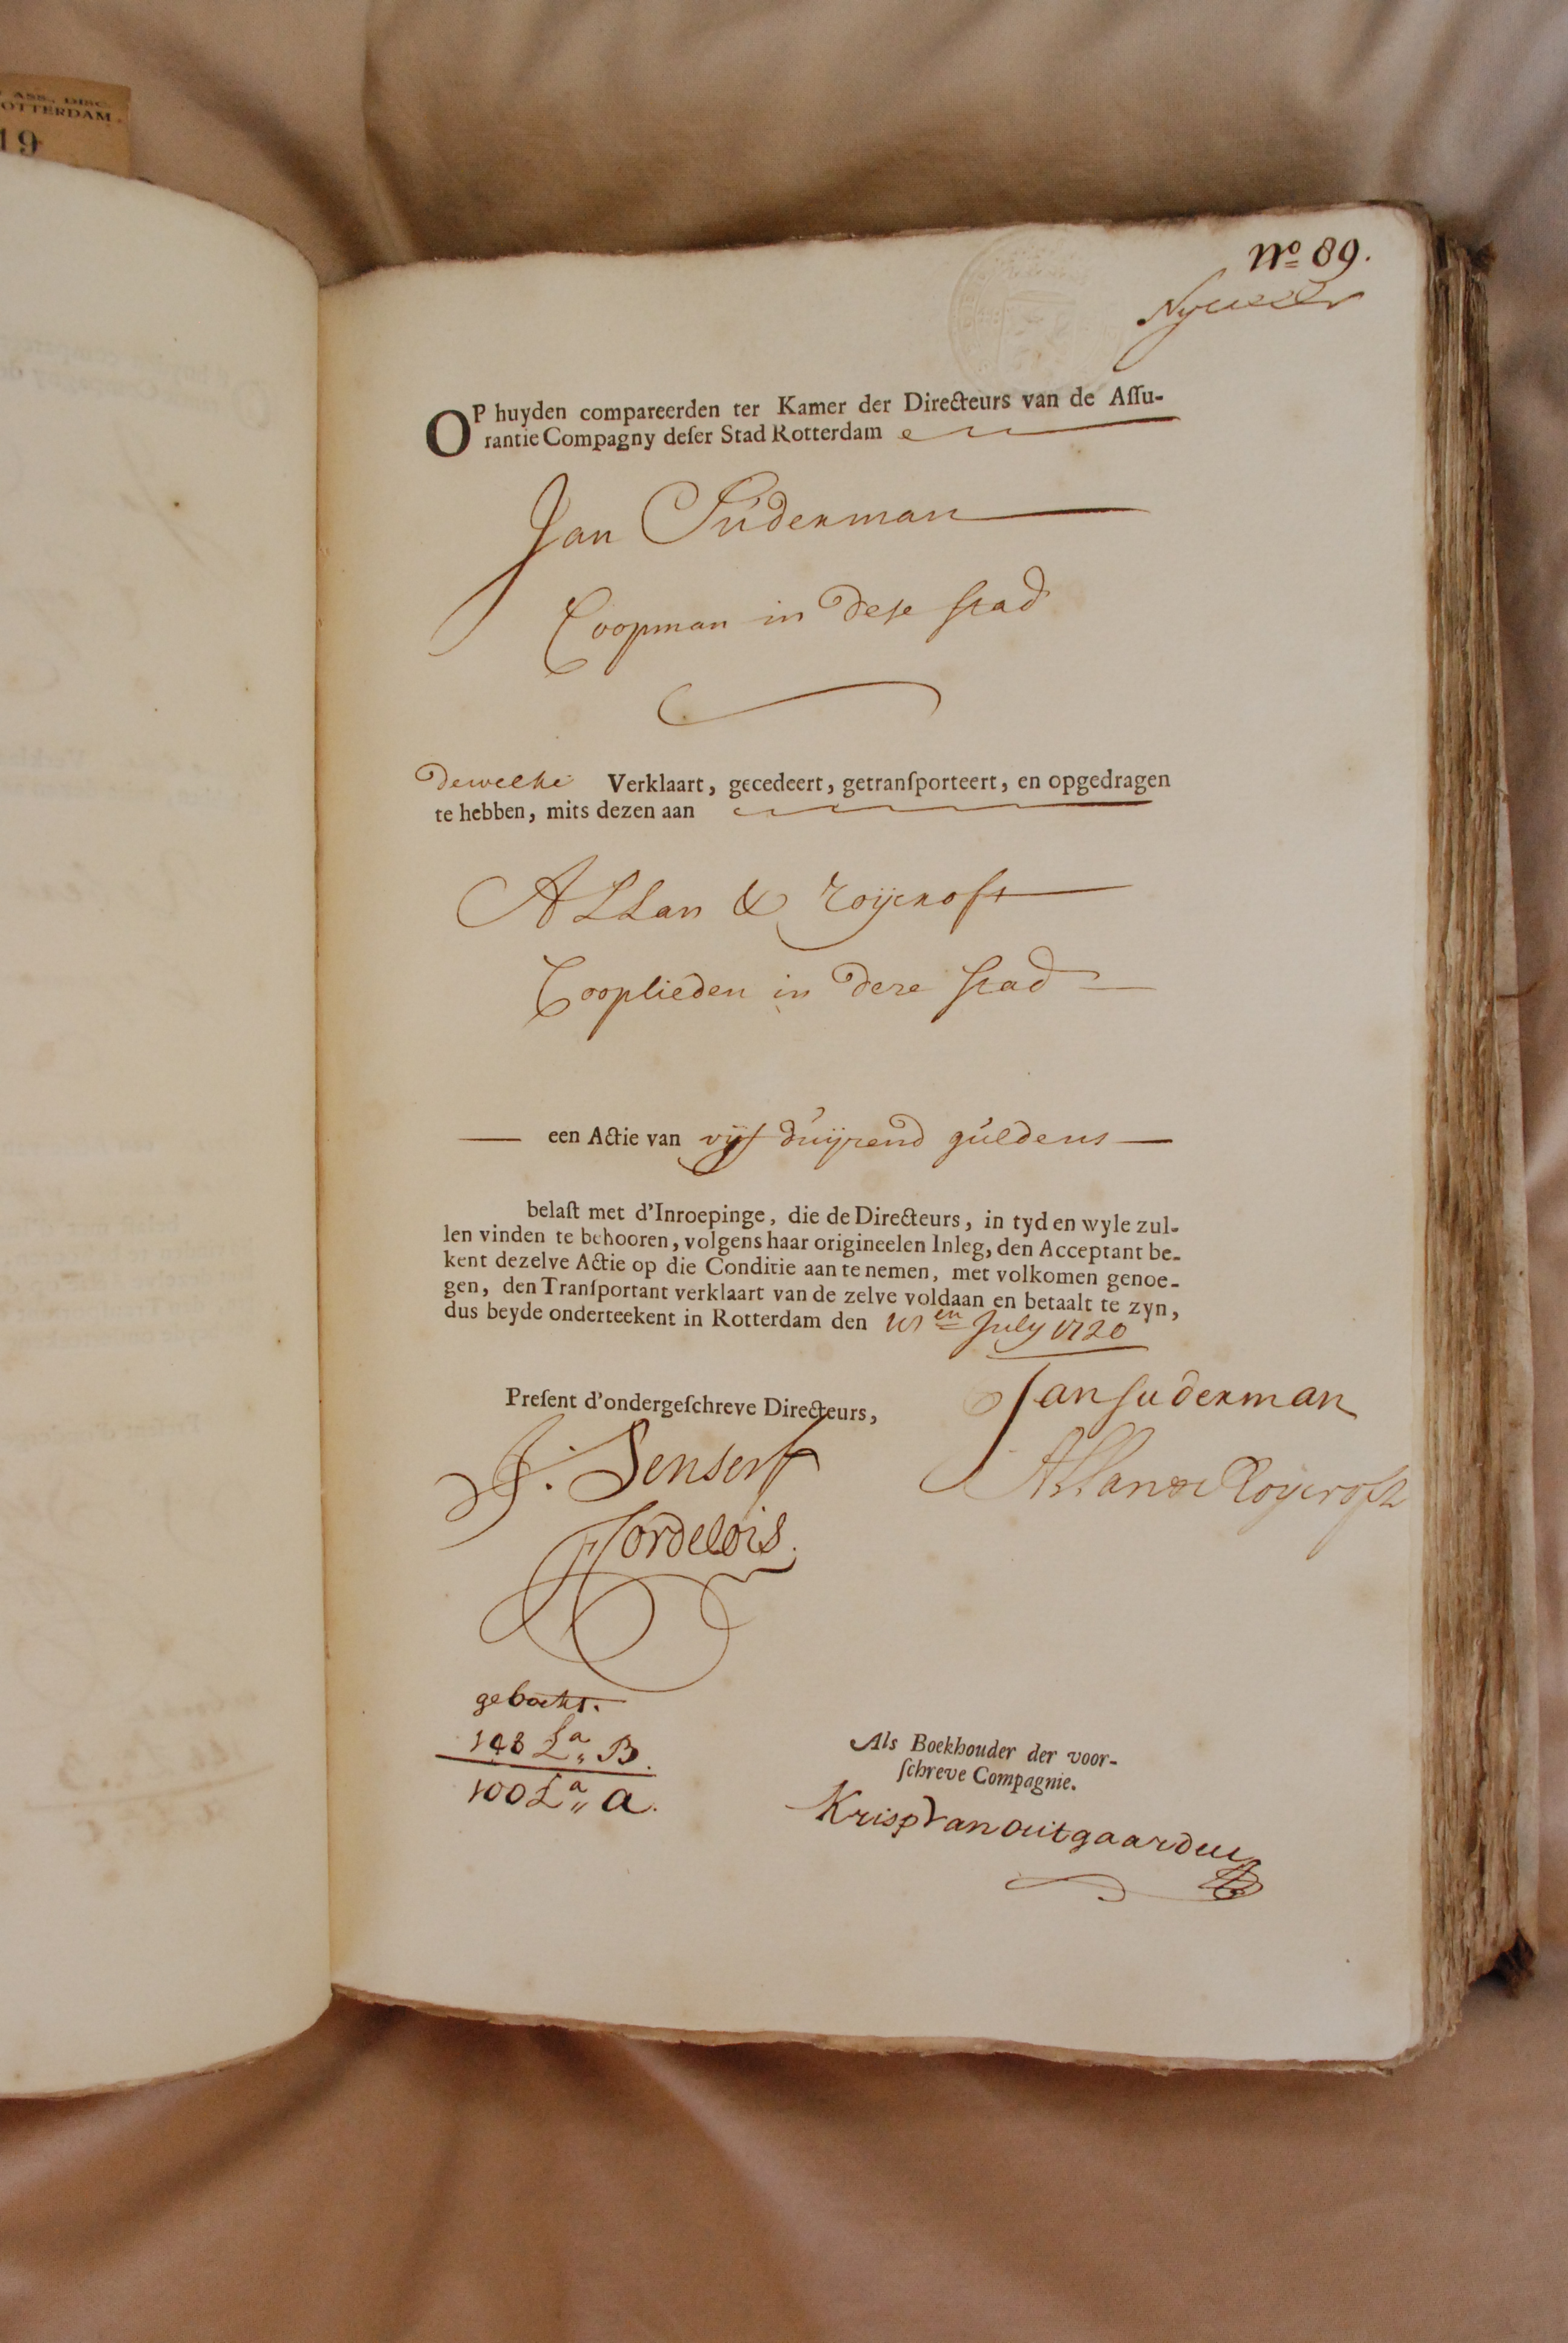 ASS. DISC.
OTTERDAM.
19
No 89.
OP huyden compareerden ter Kamer der Directeurs van de Aſſu-
rantie Compagny deſer Stad Rotterdam
Jan Suderman
Coopman in dese stad
dewelke Verklaart, gecedeert, getranſporteert, en opgedragen
te hebben, mits dezen aan
Allan & Roijcroft
Cooplieden in deze stad
een Actie van vijf duijzend guldens
belaſt met d'Inroepinge, die de Directeurs, in tyd en wyle zul-
len vinden te behooren, volgens haar origineelen Inleg, den Acceptant be-
kent dezelve Actie op die Conditie aan te nemen, met volkomen genoe-
gen, den Tranſportant verklaart van de zelve voldaan en betaalt te zyn,
dus beyde onderteekent in Rotterdam den en July 1720
Preſent d'ondergeſchreve Directeurs,
Jan Suderman
J. Senserf
Allan & Roycroft
Hordelois.
geboekt.
148 La B.
100 La a.
Als Boekhouder der voor-
ſchreve Compagnie.
Krisp Van outgaarden